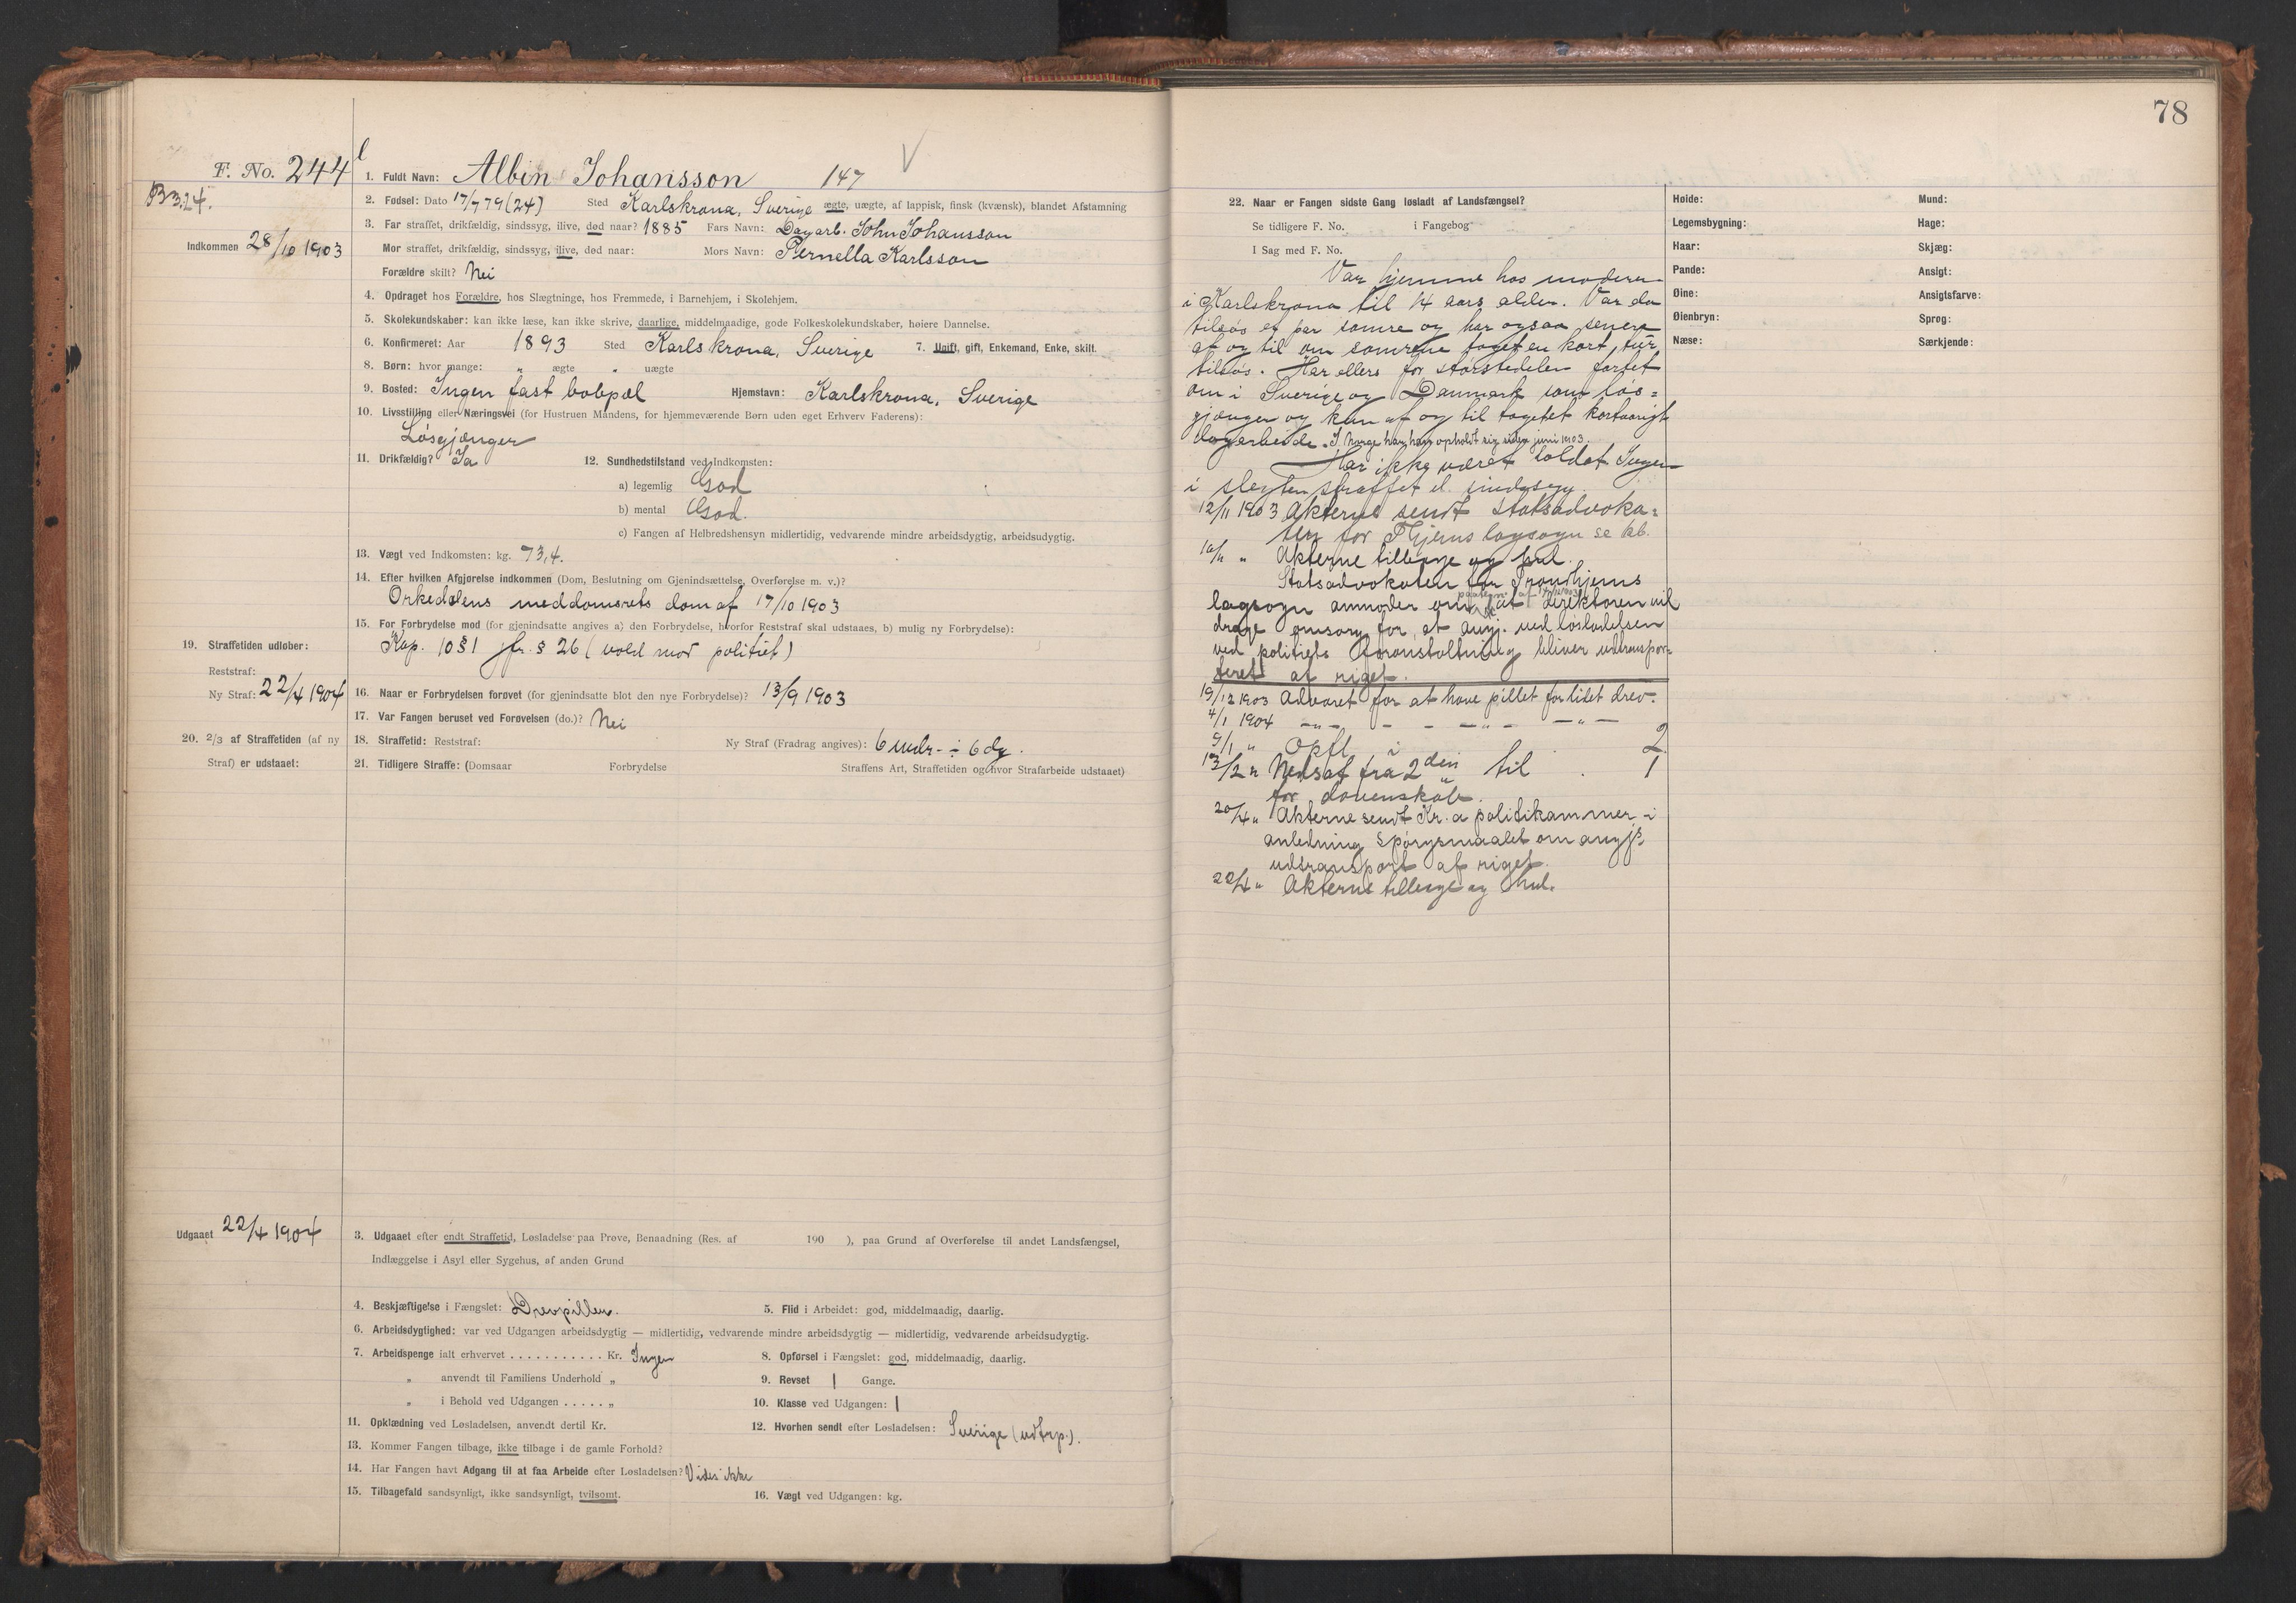 F. No. 244
B 3.24.
Indkommen 28/10 1903
1. Fuldt Navn: Albin Johansson 147
2. Fødsel: Dato 17/7 79 (24) Sted Karlskrona, Sverige ægte, uægte, af lappisk, finsk (kvænsk), blandet Afstamning
3. Far straffet, drikfældig, sindssyg, ilive, død naar? 1885 Fars Navn: Dagarb. John Johansson
Mor straffet, drikfældig, sindssyg, ilive, død naar: Mors Navn: Pernella Karlsson
Forældre skilt? Nei
4. Opdraget hos Forældre, hos Slægtninge, hos Fremmede, i Barnehjem, i Skolehjem.
5. Skolekundskaber: kan ikke læse, kan ikke skrive, daarlige, middelmaadige, gode Folkeskolekundskaber, høiere Dannelse.
6. Konfirmeret: Aar 1893 Sted Karlskrona, Sverige 7. Ugift, gift, Enkemand, Enke, skilt.
8. Børn: hvor mange: " ægte " uægte
9. Bosted: Ingen fast bobpæl Hjemstavn: Karlskrona, Sverige
10. Livsstilling eller Næringsvei (for Hustruen Mandens, for hjemmeværende Børn uden eget Erhverv Faderens):
Løsgjænger
11. Drikfældig? Ja 12. Sundhedstilstand ved Indkomsten:
a) legemlig God
b) mental God.
c) Fangen af Helbredshensyn midlertidig, vedvarende mindre arbeidsdygtig, arbeidsudygtig.
13. Vægt ved Indkomsten: kg. 73,4.
14. Efter hvilken Afgjørelse indkommen (Dom, Beslutning om Gjenindsættelse, Overførelse m. v.)?
Orkedalens meddomsrets dom af 17/10 1903
15. For Forbrydelse mod (for gjenindsatte angives a) den Forbrydelse, hvorfor Reststraf skal udstaaes, b) mulig ny Forbrydelse):
Kap. 10 § 1 jfr. § 26 (vold mod politiet)
19. Straffetiden udløber:
Reststraf:
Ny Straf: 22/4 1904
16. Naar er Forbrydelsen forøvet (for gjenindsatte blot den nye Forbrydelse)? 13/9 1903
17. Var Fangen beruset ved Forøvelsen (do.)? Nei
20. 2/3 af Straffetiden (af ny
Straf) er udstaaet:
18. Straffetid: Reststraf: Ny Straf (Fradrag angives): 6 mdr. ÷ 6 dg.
21. Tidligere Straffe: (Domsaar Forbrydelse Straffens Art, Straffetiden og hvor Strafarbeide udstaaet)
Udgaaet 22/4 1904
3. Udgaaet efter endt Straffetid, Løsladelse paa Prøve, Benaadning (Res. af 190 ), paa Grund af Overførelse til andet Landsfængsel,
Indlæggelse i Asyl eller Sygehus, af anden Grund
4. Beskjæftigelse i Fængslet: Drevpillen. 5. Flid i Arbeidet: god, middelmaadig, daarlig.
6. Arbeidsdygtighed: var ved Udgangen arbeidsdygtig — midlertidig, vedvarende mindre arbeidsdygtig — midlertidig, vedvarende arbeidsudygtig.
7. Arbeidspenge ialt erhvervet . . . . . . . . . . . Kr. Ingen 8. Opførsel i Fængslet: god, middelmaadig, daarlig.
" anvendt til Familiens Underhold " 9. Revset 1 Gange.
" i Behold ved Udgangen . . . . . " 10. Klasse ved Udgangen: 1
11. Opklædning ved Løsladelsen, anvendt dertil Kr. 12. Hvorhen sendt efter Løsladelsen: Sverige (udtrp.).
13. Kommer Fangen tilbage, ikke tilbage i de gamle Forhold?
14. Har Fangen havt Adgang til at faa Arbeide efter Løsladelsen? Vides ikke
15. Tilbagefald sandsynligt, ikke sandsynligt, tvilsomt. 16. Vægt ved Udgangen: kg.
78
22. Naar er Fangen sidste Gang løsladt af Landsfængsel?
Se tidligere F. No. i Fangebog
I Sag med F. No.
Var hjemme hos moderen
i Karlskrona til 14 aars alder. Var da
tilsøs et par somre og har ogsaa senere
af og til om somrene foget en kort tur
tilsøs. Har ellers for størstedelen fartet
om i Sverige og Danmark som løs=
gjænger og kun af og til taget et kortvarigt
dagarbeide. I Norge har han opholdt sig siden juni 1903.
Har ikke været soldat. Ingen
i slegten straffet el. sindssyg.
12/11 1903 Akterne sendt statsadvoka=
ten for Thjems lagsogn se kb.
" Akterne tilbage og hul.
Statsadvokaten for Trondhjems
lagsogn anmoder om at direktøren vil
drage omsorg for, at angj. ved løsladelsen
ved politiets foranstaltning bliver udtranspor=
teret af riget.
19/12 1903 Advaret for at have pillet for lidet drev.
4/1 1904 —"— — — —"— —"—
9/1 " Opfl. i 2
13/2 " Nedsat fra 2den til 1
for dovenskab.
20/4 " Akterne sendt Kr.a politikammer i
anledning spørgsmaalet om angjs
udtransport af riget.
22/4 " Akterne tilbage og hul.
Høide:
Legemsbygning:
Haar:
Pande:
Øine:
Øienbryn:
Næse:
Mund:
Hage:
Skjæg:
Ansigt:
Ansigtsfarve:
Sprog:
Særkjende: